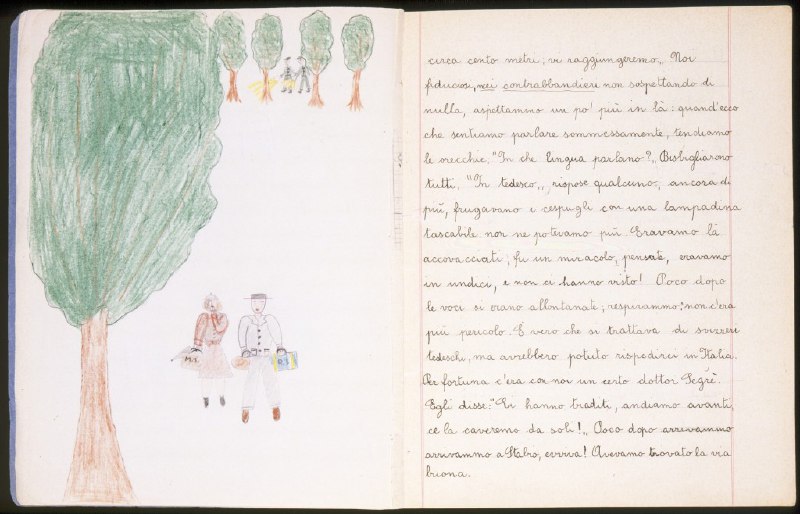 M.S.
circa cento metri; vi raggiungeremo„ Noi
fiduciosi, nei contrabbandieri non sospettando di
nulla, aspettammo un po' più in là: quand'ecco
che sentiamo parlare sommessamente, tendiamo
le orecchie: "In che lingua parlano?„ Bisbigliarono
tutti. "In tedesco„ rispose qualcuno; ancora di
più, frugavano i cespugli con una lampadina
tascabile non ne potevamo più. Eravamo là
accovacciati; fu un miracolo, pensate, eravamo
in undici, e non ci hanno visto! Poco dopo
le voci si erano allontanate; respirammo: non c'era
più pericolo. È vero che si trattava di svizzeri
tedeschi, ma avrebbero potuto rispedirci in Italia.
Per fortuna c'era con noi un certo dottor Segrè.
Egli disse: "Ci hanno traditi, andiamo avanti,
ce la caveremo da soli!„ Poco dopo arrivammo
arrivammo a Stabio, evviva! Avevamo trovato la via
buona.